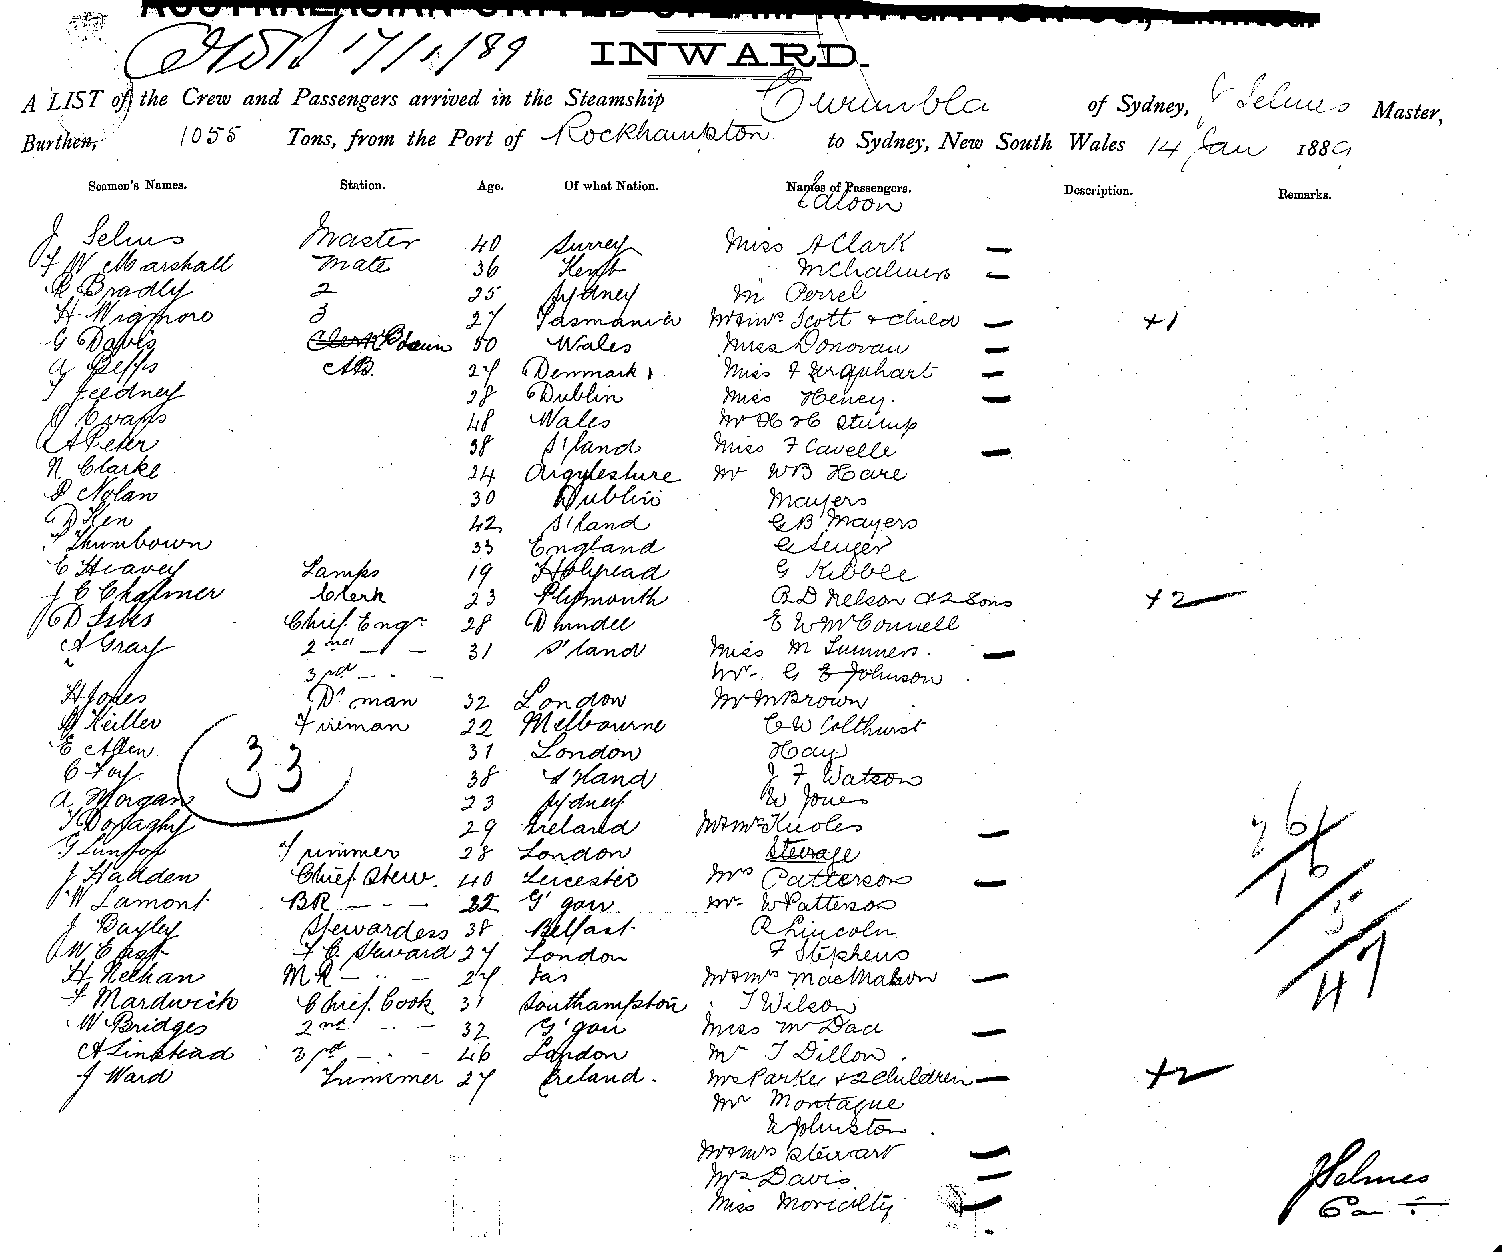 AUSTRALASIAN UNITED STEAM NAVIGATION CO., Limited.
17/1/89
INWARD.
A LIST of the Crew and Passengers arrived in the Steamship Curumbla of Sydney, J Selmes Master,
Burthen, 1055 Tons, from the Port of Rockhampton to Sydney, New South Wales 14 Jan 1889
Seamen's Names. Station. Age. Of what Nation. Names of Passengers. Description. Remarks.
Saloon
J Selmes Master 40 Surrey Miss A Clark —
F W Marshall Mate 36 Kent " McHalmers —
R Bradly 2 25 Sydney Mr Perrel
H Wigmore 3 27 Tasmania Mr & Mrs Scott & Child — +1
G Davis 50 Wales Miss Donovan —
A Jepps AB. 27 Denmark Miss F Urquhart —
T Feedney 28 Dublin Miss Heney. —
J Evans 48 Wales Mr H H Stump
A Peter 38 S'land Miss F Cavelle —
N Clarke 24 Argyleshire Mr W B Hare
P Nolan 30 Dublin Mayers
D Ken 42 S'land G B Mayers
T Thumbown 33 England G Senger
C Heavey Lamps 19 Holyhead G Kibble
J C Chalmer Clerk 23 Plymouth R D Nelson & 2 Sons +2
D Chief Engr 28 Dundee E W McConnell
A Gray 2nd — — 31 S'land Miss M Summers. —
" 3rd — - - Mr. G E Johnson
H Jones Dk man 32 London Mr M Brown
M Keiller Fireman 22 Melbourne C W Colthurst
E Allen 31 London Hay
C Foy 38 S'land J F Watson
A. Morgan 23 Sydney W Jones
T Donaghy 29 Ireland Mr & Mrs Knoles —
33
G Trimmer 28 London Steerage
J Hadden Chief Stew. 40 Leicester Mrs Patterson —
W Lamont BR — - — 22 G'gow Mr. W Patterson
J Bayley Stewardess 38 Belfast R Lincoln
W East F C Steward 27 London F Stephens
H Neehan M R — - — 27 Tas Mr & Mrs MacMahon —
F Mardwick Chief Cook 31 Southampton T Wilson
W Bridges 2nd - - — 32 G'gow Miss M Dad —
A Linstead 3rd — - - 46 London Mr T Dillon.
J Ward Trimmer 27 Ireland. Mrs Parke & 2 Children — +2
Mr Montague
W Johnston
Mr & Mrs Stewart —
Mrs Davis —
Miss Moriolty —
47
J Selmes